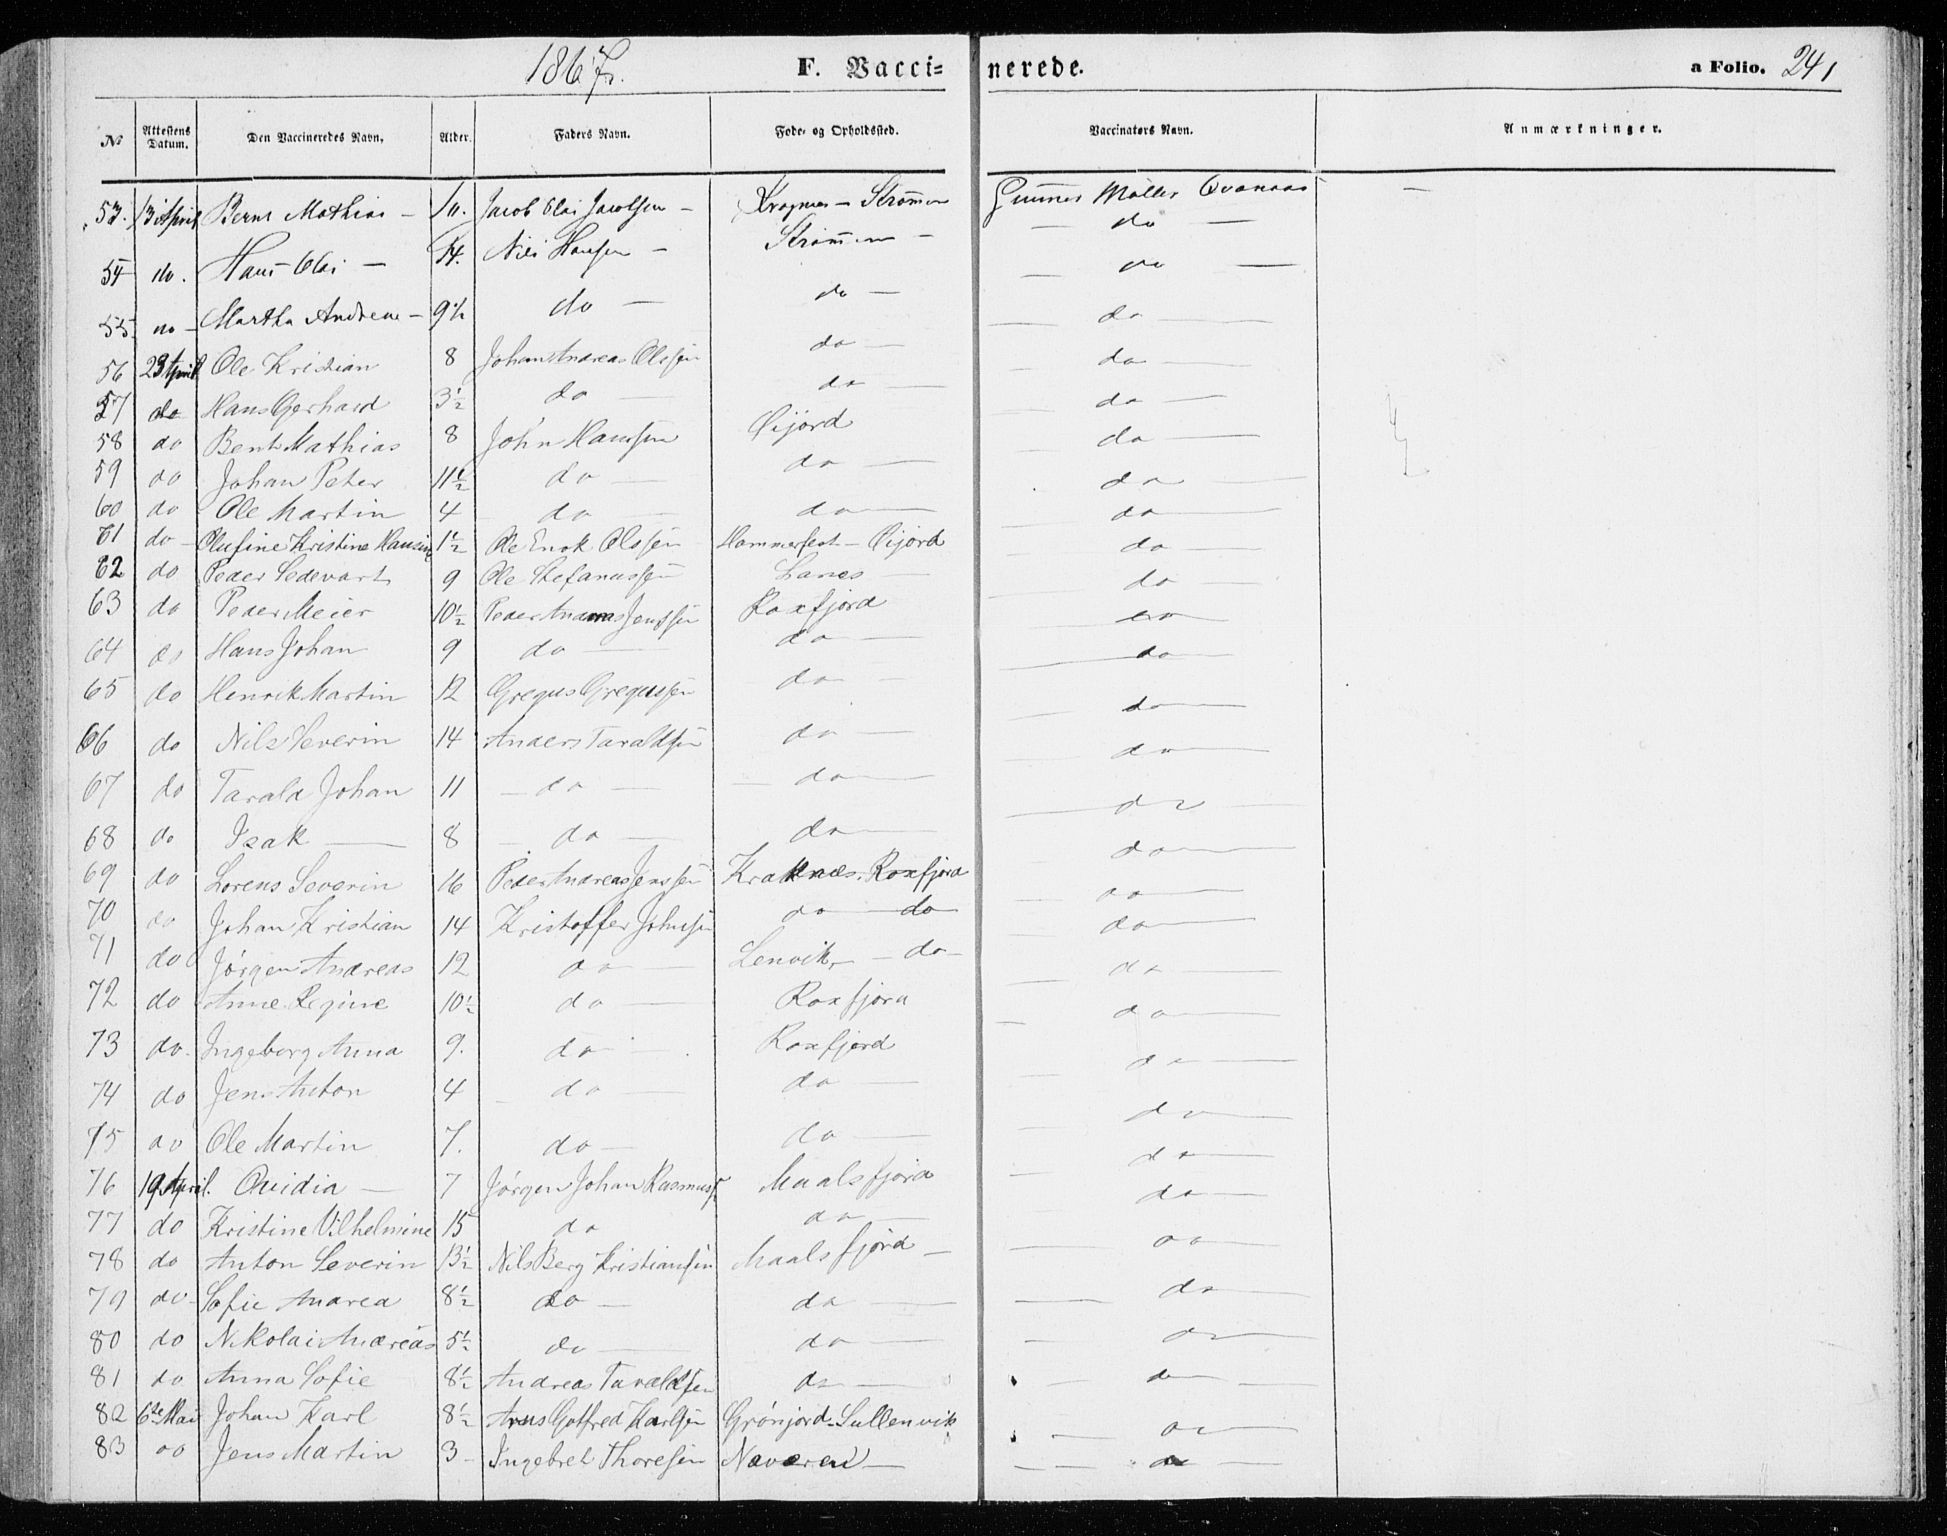 1867.
F. Vaccinerede.
a Folio. 241
No Attestens Datum. Den Vaccineredes Navn. Alder. Faders Navn. Føde- og Opholdssted. Vaccinators Navn. Anmærkninger.
53. 13 April Bernt Mathias — 10. Jacob Olai Jacobsen — Kragnes — Strømmen Gunner Møller —
54 do. Hans Olai — 14. Nils Hansen — Strømmen — — do —
55. do — Martha Andrea — 9½ do — do — — do —
56 23 April Ole Kristian 8 Johan Andreas Olssen do — — do —
57 do Hans Gerhard 3½ do — do — — do —
58 do Bent Mathias 8 John Hanssen Øijord — do —
59 do Johan Peter 11½ do — do — — do —
60 do Ole Martin 4 do — do — do —
61 do — Olufine Kristine Hansine 1½ Ole Enok Olssen Hammerfest — Øijord — do —
62 do Peder Sedevart 9 Ole Stefanussen Lanes — — do —
63 do Peder Meier 10½ Peder Andreas Jenssen Roxfjord — do —
64 do Hans Johan 9 do — do — — do —
65 do Henrik Martin 12 Gregus Gregussen do — — do —
66 do Nils Severin 14 Anders Taraldsen do — — do —
67 do Tarald Johan 11 — do — — do — — do —
68 do Isak — 8 — do — do — — do —
69 do Lorens Severin 16 Peder Andreas Jenssen Kraknæs. Roxfjord — do —
70 do Johan Kristian 14 Kristoffer Johnsen do — do — do —
71 do Jørgen Andreas 12 do — Lenvik, — do — do —
72 do Anne Regine 10½ do — Roxfjord do —
73 do. Ingeborg Anna 9. do — Roxfjord — do —
74 do Jens Anton 4 — do — do — — do —
75 do Ole Martin 7. do — do — — do —
76 19 April. Ovidia — 7 Jørgen Johan Rasmuss Maalsfjord — do —
77 do Kristine Vilhelmine 15 do do — do —
78 do Anton Severin 13½ Nils Berg Kristiansen Maalsfjord — — do —
79 do — Sofie Andrea 8½ do — do — — do —
80 do Nikolai Andreas 5½ do — do — — do —
81 do Anna Sofie 8½ Andreas Taraldsen do — do —
82 6te Mai Johan Karl 8½ Gotfred Karlsen Grønjord. Sullenvik — do —
83 do Jens Martin 3 — Ingebret Thoresen Naveren — — do —